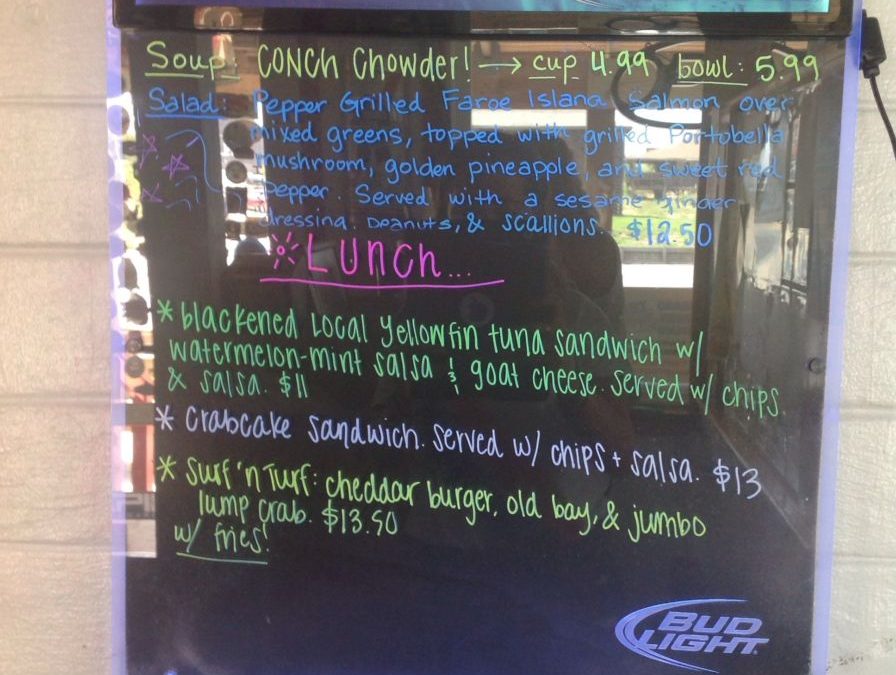 Soup: CONCH Chowder! → cup 4.99 bowl: 5.99
Salad: Pepper Grilled Faroe Island Salmon over
mixed greens, topped with grilled Portobella
mushroom, golden pineapple, and sweet red
pepper. Served with a sesame ginger
dressing. peanuts, & scallions. $12.50
LUNCH...
* blackened Local yellowfin tuna sandwich w/
watermelon-mint salsa & goat cheese. served w/ chips
& salsa. $11
* crabcake sandwich. served w/ chips + salsa. $13
* surf 'n Turf: cheddar burger, old bay, & jumbo
lump crab. $13.50
w/ fries!
BUD
LIGHT